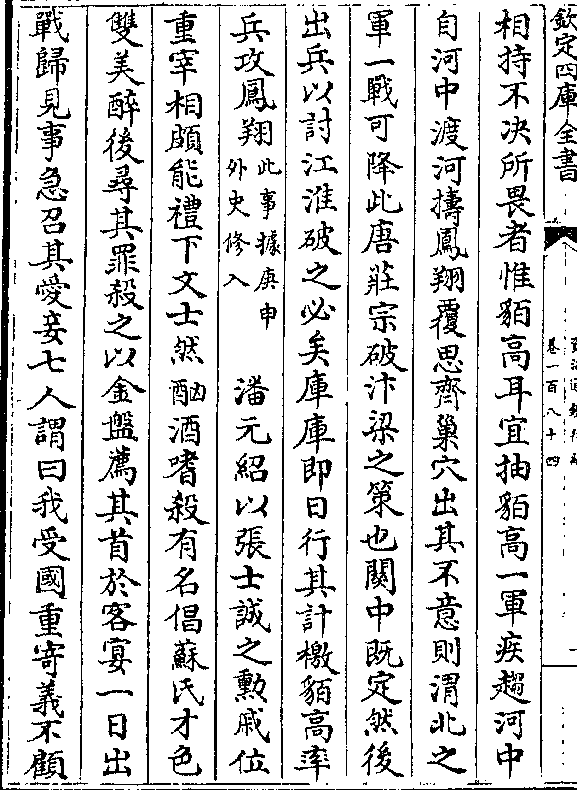 欽定四庫全書
卷一百八十四
相持不决所畏者惟貊高耳宜抽貊高一軍疾趨河中
自河中渡河擣鳳翔覆思齊巢穴出其不意則渭北之
軍一戰可降此唐莊宗破汴梁之策也關中既定然後
出兵以討江淮破之必矣庫庫即日行其計檄貊高率
兵攻鳳翔此事據庚申外史修入 潘元紹以張士誠之勲戚位
重宰相頗能禮下文士然酗酒嗜殺有名倡蘇氏才色
雙美醉後尋其罪殺之以金盤薦其首於客宴一日出
戰歸見事急召其愛妾七人謂曰我受國重寄義不顧